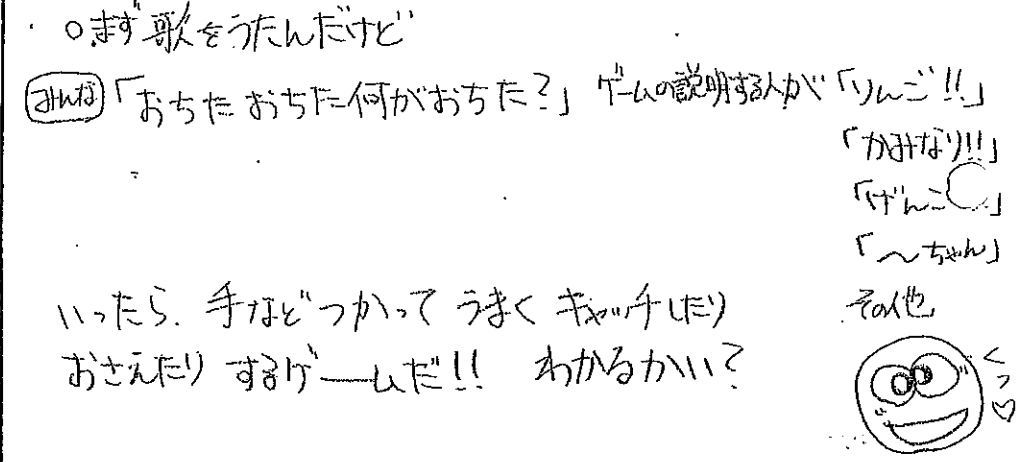 ○まず歌をうたんだけど
みんな「おちた おちた何がおちた？」 ゲームの説明する人が「りんご!!」
「かみなり!!」
「げんこ
「～ちゃん」
その他
いったら、手などつかって うまく キャッチしたり
おさえたり するゲームだ!! わかるかい？
くっ♡